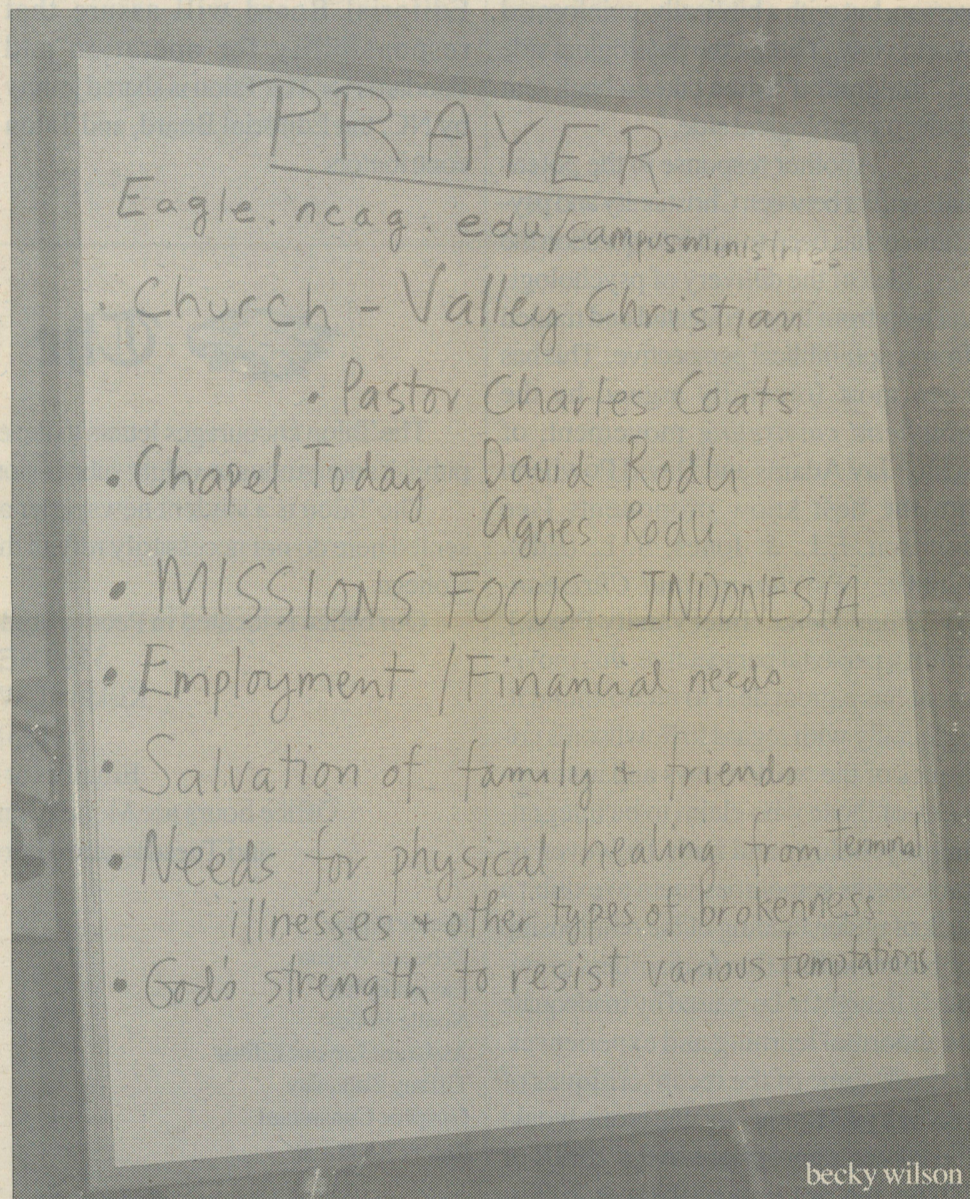 PRAYER
Eagle.ncag.edu/campusministries
· Church - Valley Christian
· Pastor Charles Coats
· Chapel Today David Rodli
Agnes Rodli
· MISSIONS FOCUS INDONESIA
· Employment / Financial needs
· Salvation of family + friends
· Needs for physical healing from terminal
illnesses + other types of brokenness
· God's strength to resist various temptations
becky wilson